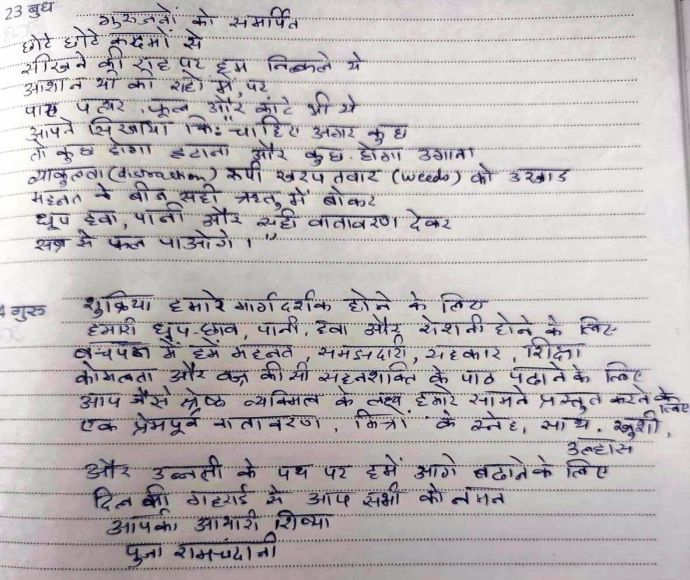 23 बुध
गुरुजनों को समर्पित
छोटे छोटे कदमों से
सीखने की राह पर हम निकले थे
आशान थी का राहों में, पर
पास पत्थर, फूल और कांटे भी थे
आपने सिखाया कि: "चाहिए अगर कुछ
तो कुछ होगा हटाना और कुछ होगा उगाना
व्याकुलता (distraction) रूपी खरपतवार (weeds) को उखाड
महनत के बीज सही ऋतु में बोकर
धूप हवा, पानी और सही वातावरण देकर
सब्र से फल पाओगे।"
4 गुरु
शुक्रिया हमारे मार्गदर्शक होने के लिए
हमारी धूप-छाव, पानी, हवा और रोशनी होने के लिए
बचपन में हमें महनत, समझदारी, सहकार, शिक्षा
कोमलता और वज्र की सी सहनशक्ति के पाठ पढाने के लिए
आप जैसे श्रेष्ठ व्यक्तित्व के लक्ष्य हमारे सामने प्रस्तुत करने के लिए
एक प्रेमपूर्व वातावरण, मित्रों के स्नेह, साथ, खुशी,
उल्हास
और उन्नती के पथ पर हमें आगे बढाने के लिए
दिल की गहराई से आप सभी को नमन
आपकी आभारी शिष्या
पुजा रामचंदानी